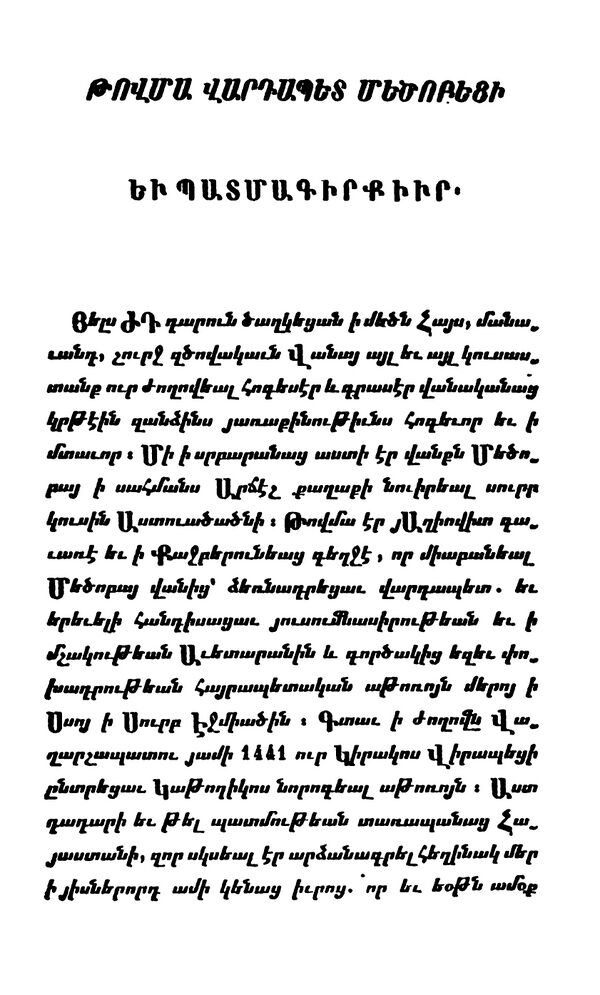 ԹՈՎՄԱ ՎԱՐԴԱՊԵՏ ՄԵԾՈԲԵՑԻ
ԵՒ ՊԱՏՄԱԳԻՐՔ ԻՒՐ·
Ցելս ԺԴ դարուն ծաղկեցան ի մեծն Հայս, մանա֊
ւանդ, շուրջ զծովակաւն Վանայ այլ եւ այլ կուսաս֊
տանք ուր ժողովեալ հոգեսէր և գրասէր վանականաց
կրթէին զանձինս յառաքինութիւնս հոգեւոր եւ ի
մտաւոր ։ Մի ի սրբարանաց աստի էր վանքն Մեծո֊
բայ ի սահմանս Արճէշ քաղաքի նուիրեալ սուրբ
կուսին Աստուածածնի ։ Թովմա էր յԱղիովիտ գա֊
ւառէ եւ ի Քաջբերունեաց գեղջէ, որ միաբանեալ
Մեծոբայ վանից՝ ձեռնադրեցաւ վարդապետ. եւ
երեւելի հանդիսացաւ յուսումնասիրութեան եւ ի
մշակութեան Աւետարանին և գործակից եղեւ փո֊
խադրութեան հայրապետական աթոռոյն մերոյ ի
Սսոյ ի Սուրբ Էջմիածին ։ Գտաւ ի ժողովն Վա֊
ղարշապատու յամի 1441 ուր Կիրակոս Վիրապեցի
ընտրեցաւ Կաթողիկոս նորոգեալ աթոռոյն ։ Աստ
դադարի եւ թել պատմութեան տառապանաց Հա֊
յաստանի, զոր սկսեալ էր արձանագրել հեղինակ մեր
ի յիսներորդ ամի կենաց իւրոյ. որ եւ եօթն ամօք